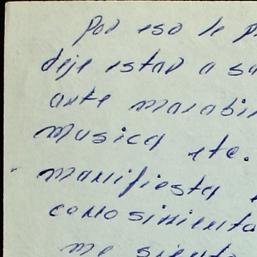 Por eso le p
deje estar a sa
ante marabi
musica etc.
manifiesta
conosimienta
me siento